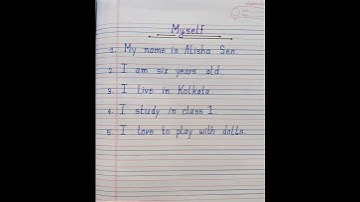 Myself
1. My name is Alisha Sen.
2. I am six years old
3. I live in Kolkata.
4. I study in class 1.
5. I love to play with dolls.